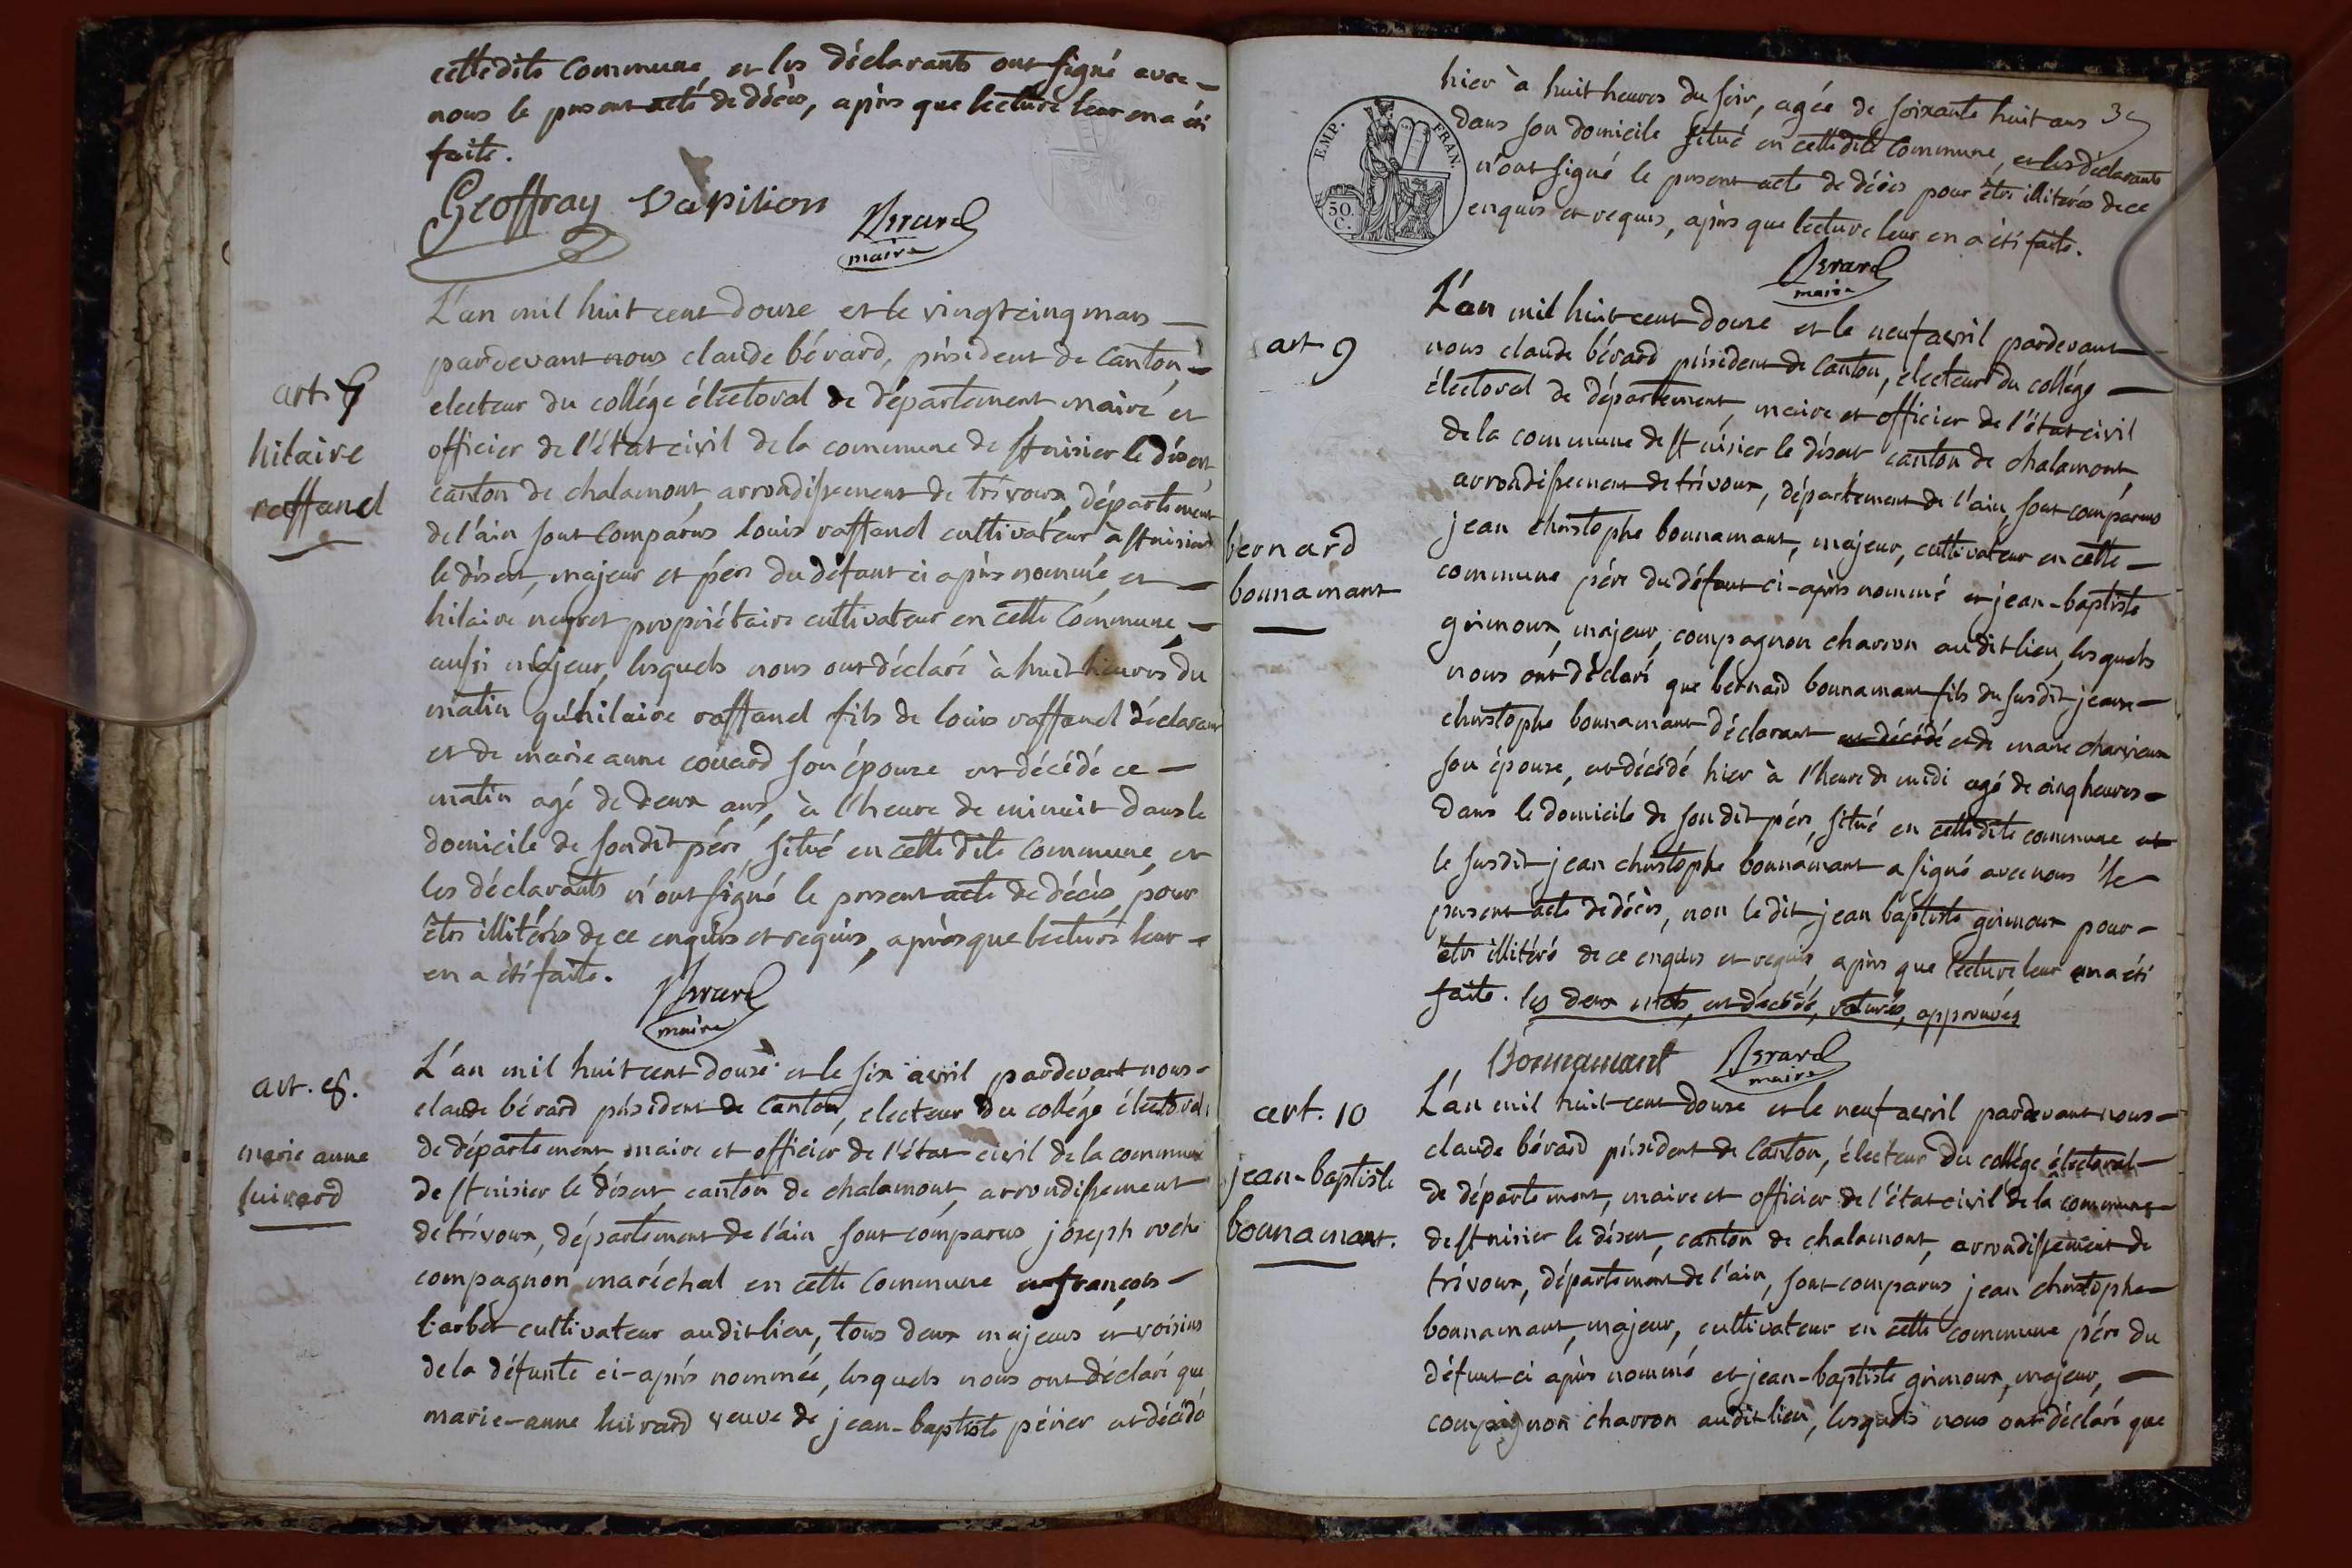 cettedite commune, et les déclarants ont signé avec
nous le present acte de décès, après que lecture leur en a été
faite.
Geoffray Vapilion Bérard
maire
L'an mil huit cent douze et le vingt cinq mars
pardevant nous claude bérard, président de canton,
electeur du collége électoral de département maire et
art. 7
officier de l'état civil de la commune de St nisier le désert,
hilaire
canton de chalamont, arrondissement de trévoux, département
raffand
de l'ain sont comparus louis raffand cultivateur à St nisier
le désert, majeur et père du défunt ci après nommé, et
hilaire propriétaire cultivateur en cette commune,
aussi majeur, lesquels nous ont déclaré à huit heures du
matin qu'hilaire raffand fils de louis raffand déclarant
et de marie anne couard son épouse est décédé ce
matin agé de deux ans, à l'heure de minuit dans le
domicile de sondit père, situé en cette dite commune, et
les déclarants n'ont signé le present acte de décès, pour
être illitérés de ce enquis et requis, après que lecture leur
en a été faite.
Bérard
maire
L'an mil huit cent douze et le six avril pardevant nous
art. 8.
claude bérard président de canton, electeur du collége électoral
de département, maire et officier de l'état civil de la commune
marie anne
de St nisier le désert canton de chalamont, arrondissement
luirard
de trévoux, département de l'ain sont comparus joseph roche
compagnon maréchal en cette commune et françois
barbet cultivateur audit lieu, tous deux majeurs et voisins
de la défunte ci-après nommée, lesquels nous ont déclaré que
marie-anne luirard veuve de jean-baptiste périer est décédé
hier à huit heures du soir, agée de soixante huit ans
dans son domicile situé en cettedite commune, et les déclarants
n'ont signé le present acte de décès pour être illitérés de ce
enquis et requis, après que lecture leur en a été faite.
EMP. FRAN.
50.
C.
Bérard
maire
L'an mil huit cent douze et le neuf avril pardevant
art 9
nous claude bérard président de canton, electeur du collége
électoral de département, maire et officier de l'état civil
de la commune de St nisier le désert canton de chalamont,
arrondissement de trévoux, département de l'ain, sont comparus
jean christophe bonnamant, majeur, cultivateur en cette
bernard
commune père du défunt ci-après nommé et jean-baptiste
bonnamant
grimoux, majeur, compagnon charron audit lieu, lesquels
nous ont déclaré que bernard bonnamant fils du susdit jean
christophe bonnamant déclarant est décédé et de marie charvieux
son épouse, est décédé hier à l'heure de midi agé de cinq heures
dans le domicile de son dit père, situé en cettedite commune et
le susdit jean christophe bonnamant a signé avec nous le
present acte de décès, non le dit jean baptiste grimoux pour
être illitéré de ce enquis et requis, après que lecture leur en a été
faite. les deux mots, est décédé, raturés, approuvés
Bonnamant Bérard
maire
art. 10
L'an mil huit cent douze et le neuf avril pardevant nous
claude bérard président de canton, électeur du collége électoral
jean-baptiste
de département, maire et officier de l'état civil de la commune
bonnamant.
de St nisier le désert, canton de chalamont, arrondissement de
trévoux, département de l'ain, sont comparus jean christophe
bonnamant, majeur, cultivateur en cette commune père du
défunt ci après nommé et jean-baptiste grimoux, majeur,
compagnon charron audit lieu, lesquels nous ont déclaré que